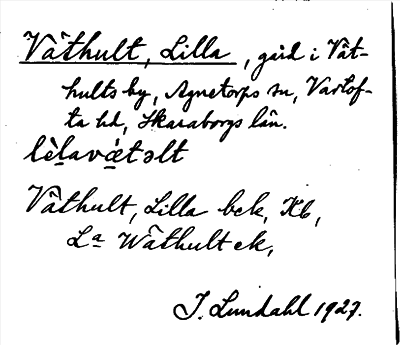 Våthult, Lilla, gård i Våt-
hults by, Agnetorps sn, Vartof-
ta hd, Skaraborgs län.
lèḷavǽtəlt
Våthult, Lilla bck, Kb,
Lª Wåthult ek,
J. Lundahl 1927.